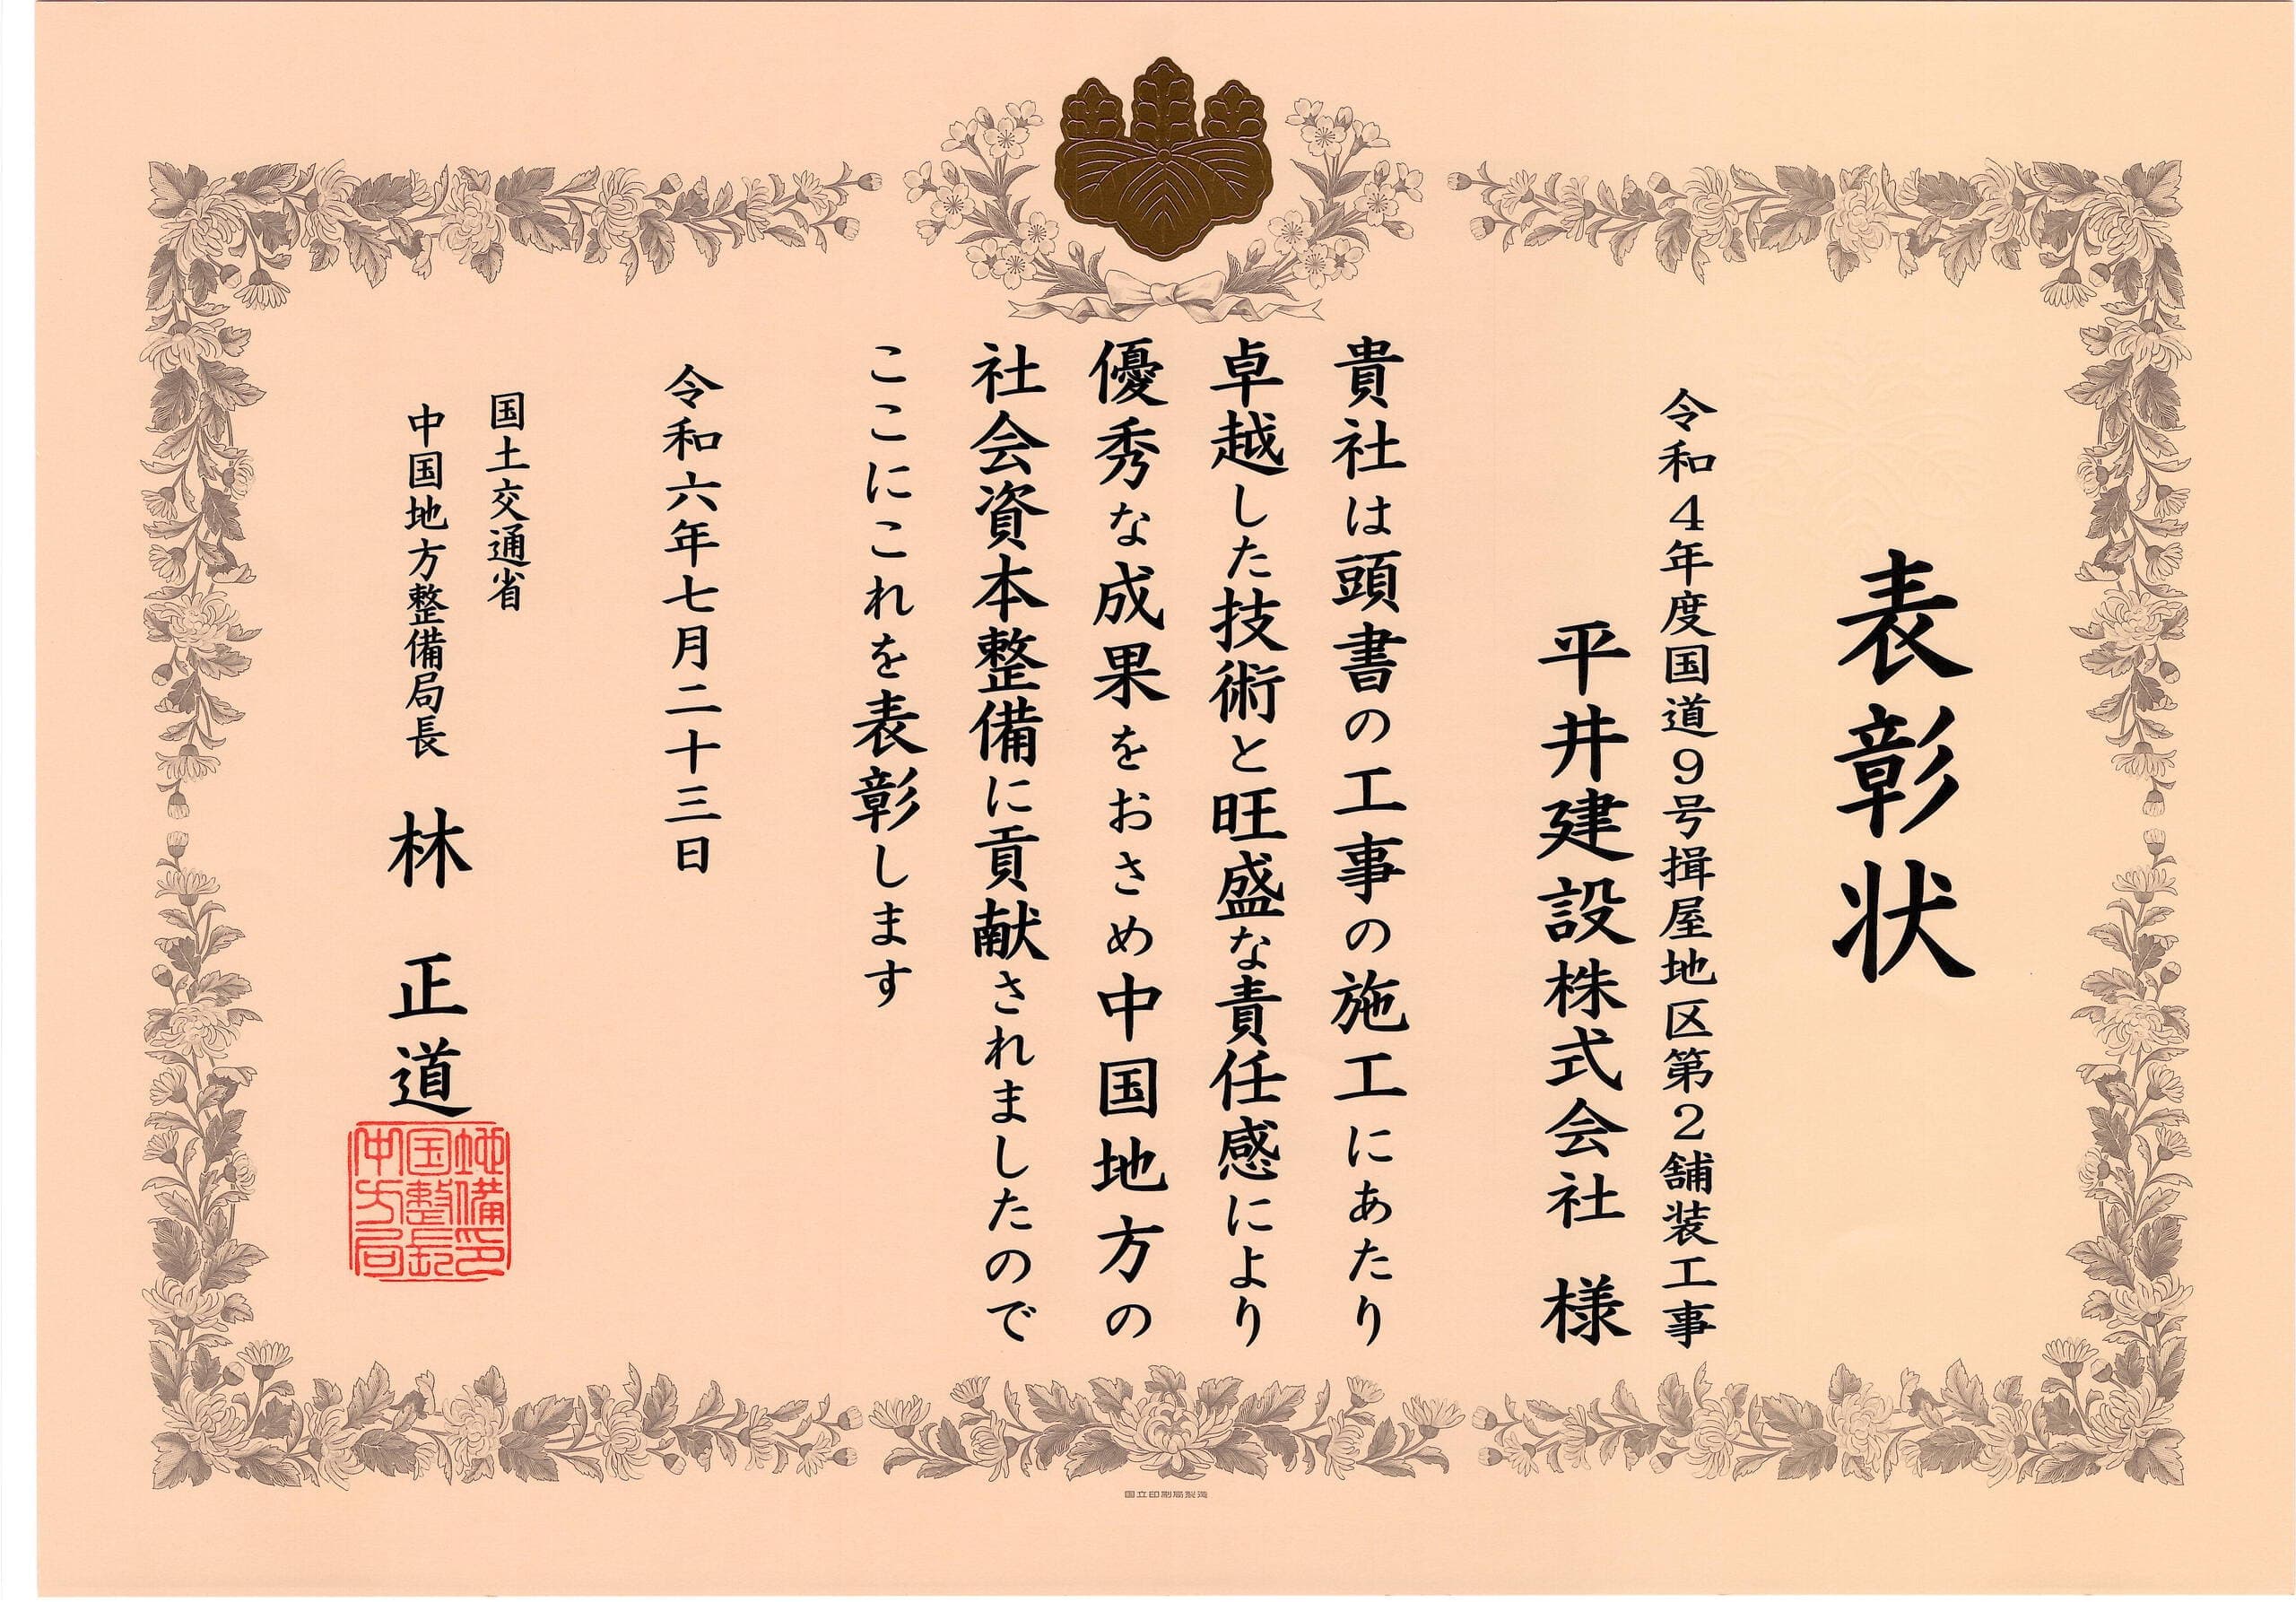 表彰状
令和4年度国道9号揖屋地区第2舗装工事
平井建設株式会社 様
貴社は頭書の工事の施工にあたり
卓越した技術と旺盛な責任感により
優秀な成果をおさめ中国地方の
社会資本整備に貢献されましたので
ここにこれを表彰します
令和六年七月二十三日
国土交通省
中国地方整備局長 林 正道
中国地方整備局長印
国立印刷局製造